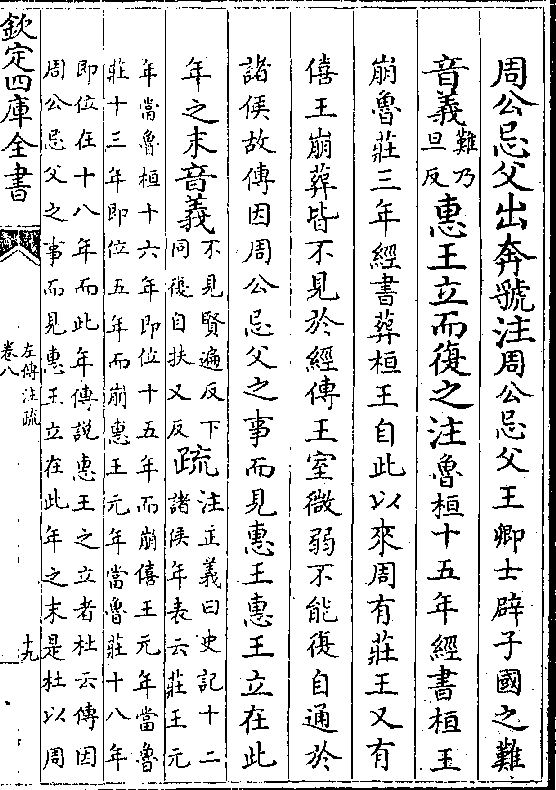 周公忌父出奔虢注周公忌父王卿士辟子國之難
音義難乃旦反惠王立而復之注魯桓十五年經書桓王
崩魯莊三年經書葬桓王自此以來周有莊王又有
僖王崩葬皆不見於經傳王室微弱不能復自通於
諸侯故傳因周公忌父之事而見惠王惠王立在此
年之末音義不見賢遍反下同復自扶又反疏注正義曰史記十二諸侯年表云莊王元
年當魯桓十六年即位十五年而崩僖王元年當魯
莊十三年即位五年而崩惠王元年當魯莊十八年
即位在十八年而此年傳說惠王之立者杜云傳因
周公忌父之事而見惠王立在此年之末是杜以周
欽定四庫全書
左傳注疏
卷八
十九